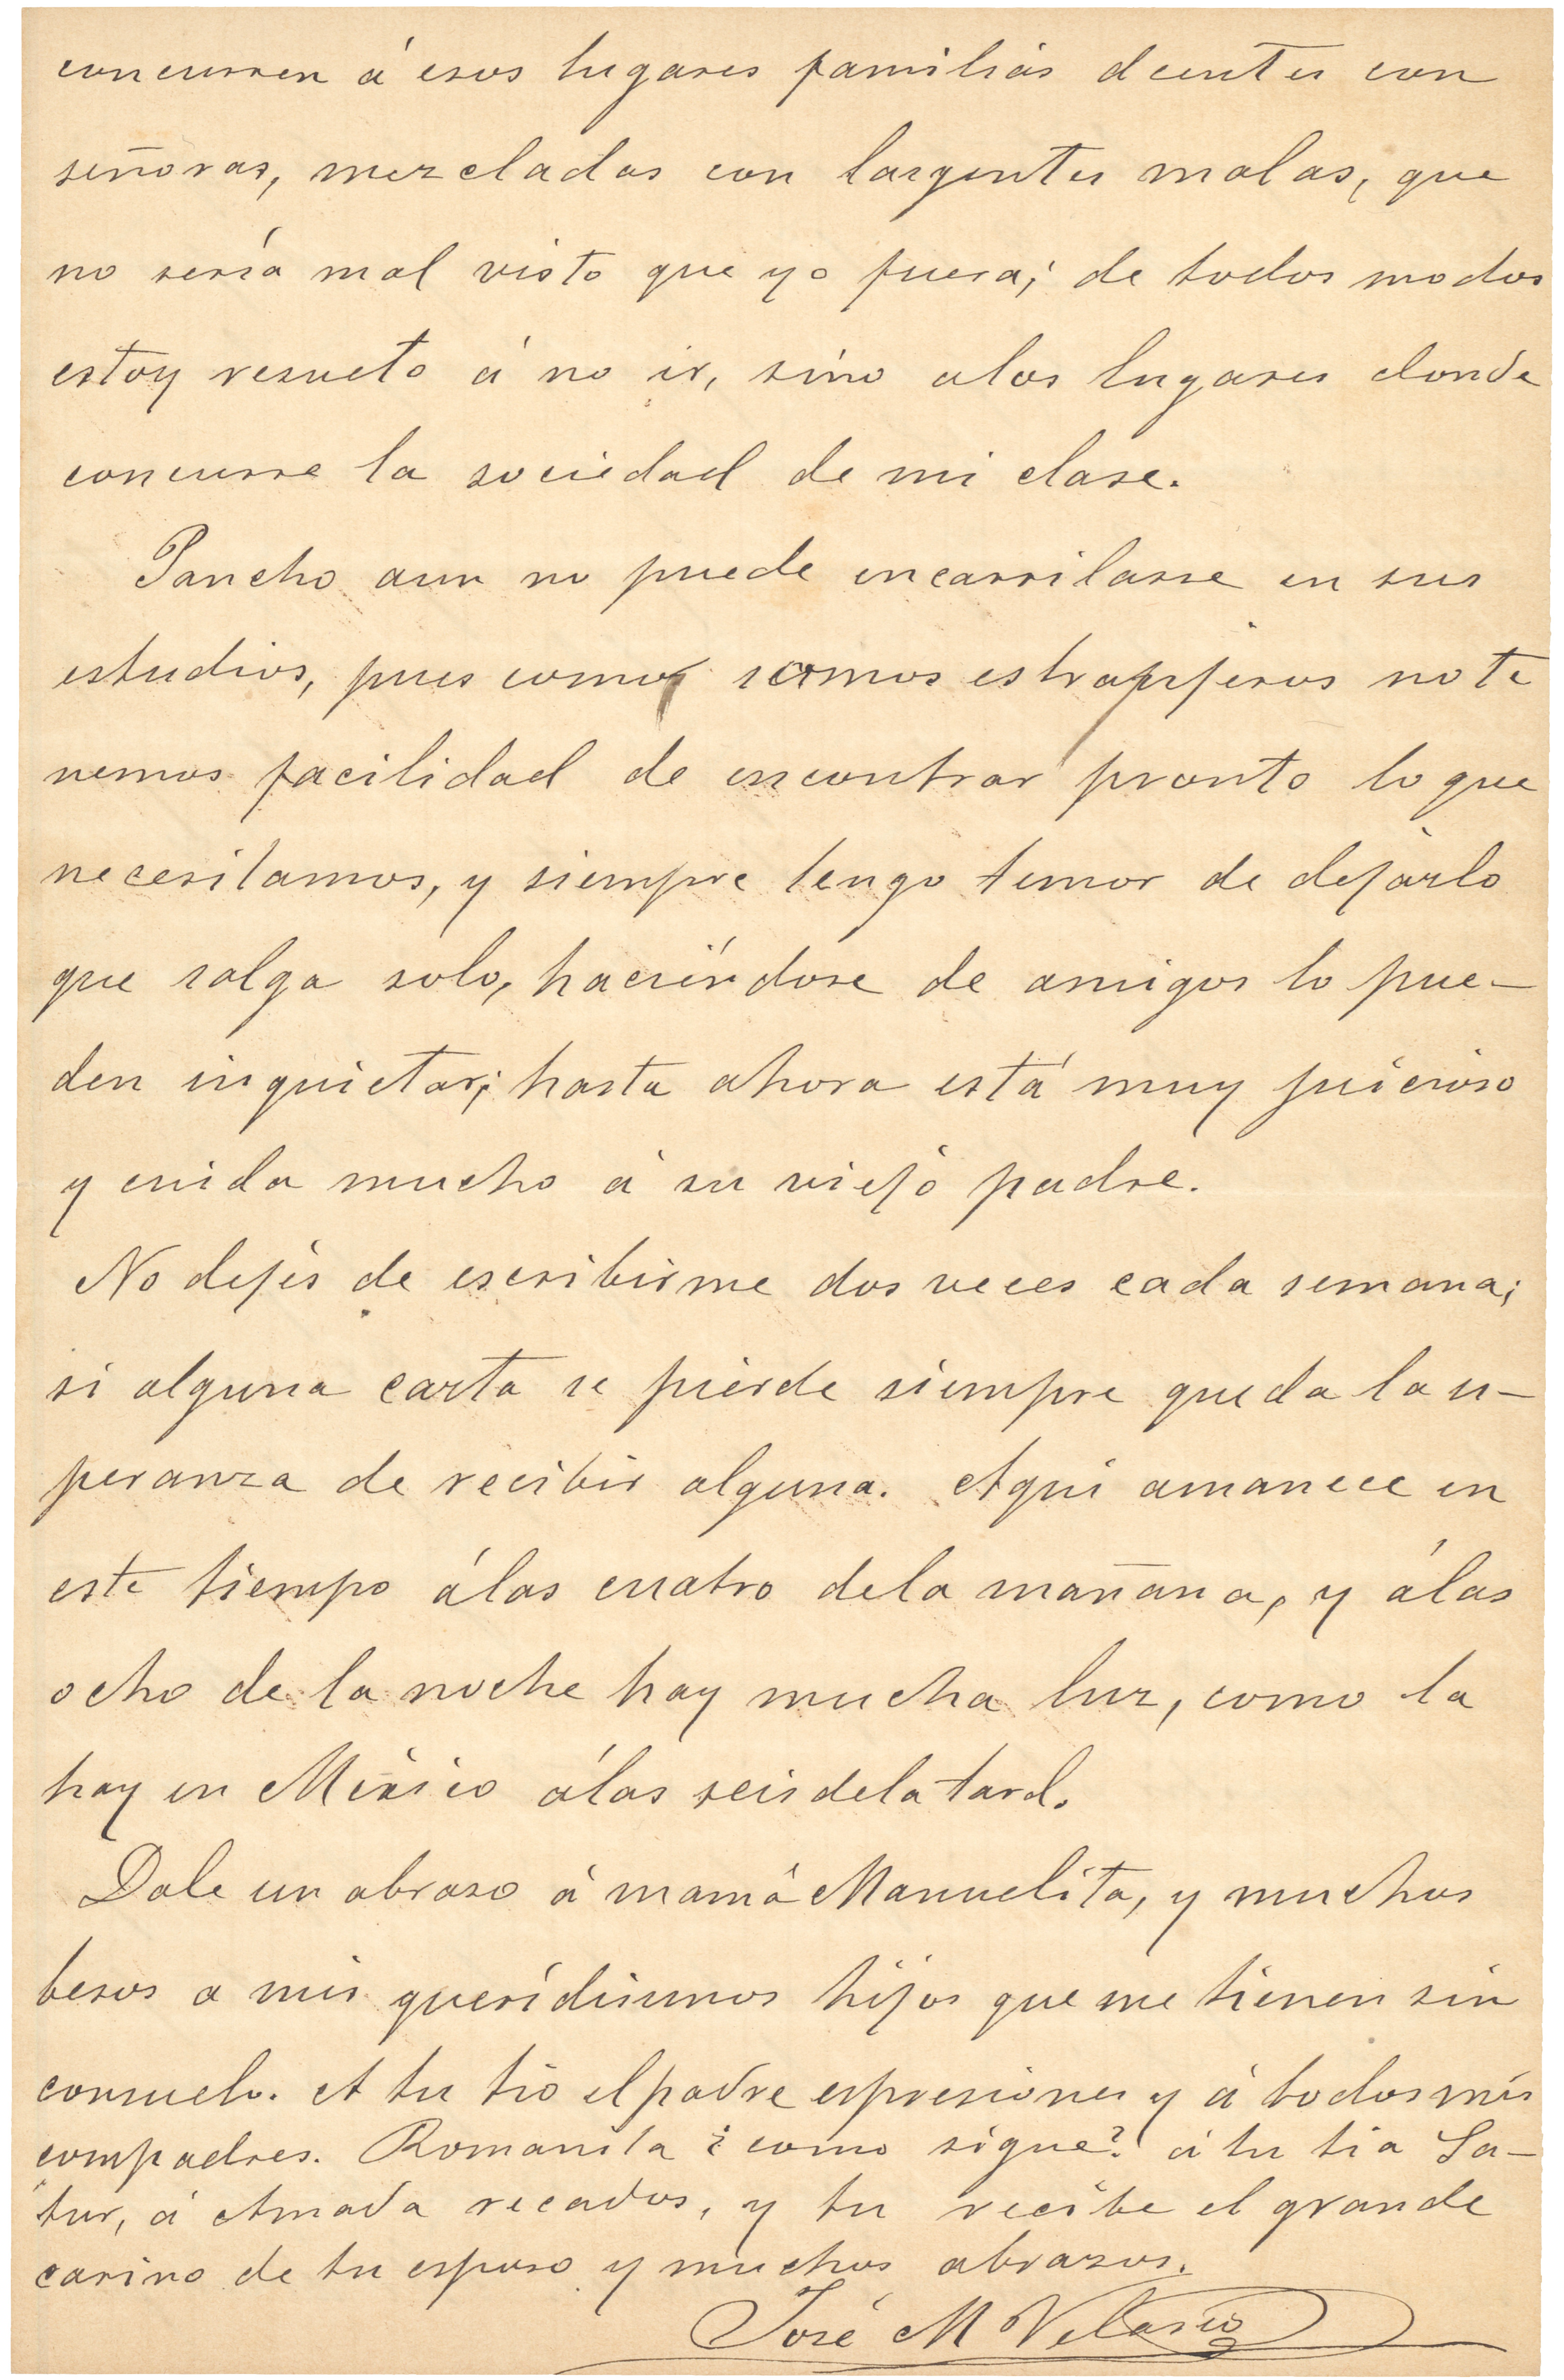 concurren á esos lugares familias dcentes con
señoras, mezcladas con las gentes malas, que
no sería mal visto que yo fuera; de todos modos
estoy resueto á no ir, sino a los lugares donde
concurre la sociedad de mi clase.
Pancho aun no puede encarrilarse en sus
estudios, pues como somos estranjeros no te
nemos facilidad de encontrar pronto lo que
necesitamos, y siempre tengo temor de dejarlo
que salga solo, haciéndose de amigos lo pue-
den inquietar; hasta ahora está muy juicioso
y cuida mucho á su viejo padre.
No dejes de escribirme dos veces cada semana;
si alguna carta se pierde siempre queda la es-
peranza de recibir alguna. Aqui amanece en
este tiempo á las cuatro de la mañana, y á las
ocho de la noche hay mucha luz, como la
hay en México á las seis de la tard.
Dale un abraso á mamá Manuelita, y muchos
besos a mis queridisimos hijos que me tienen sin
consuelo. A tu tio el padre espresiones y á todos mis
compadres. Romanita ¿como sigue? á tu tia Sa-
tur, á Amada recados, y tu recibe el grande
carino de tu esposo y muchos abrazos.
José M Velasco